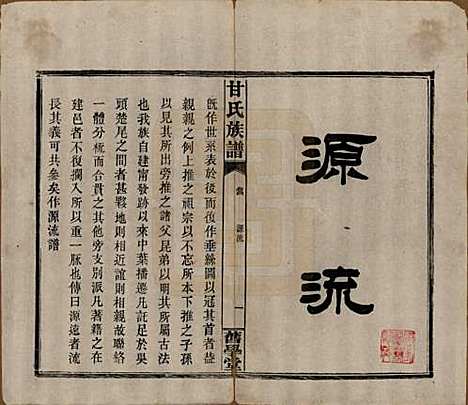 源流
甘氏族譜
卷
源流
一
舊學堂
既作世系表於後復作垂絲圖以冠其首者蓋
親親之例上推之祖宗以及其本下推之子孫
以見其所出旁推之諸父昆弟以明其所屬古法
也我族自建甯發跡以來中葉播遷凡託足於吳
頭楚尾之間者甚夥地則相近誼則相親故聯絡
一體分梳而合貫之其他旁支別派凡著籍之在
建邑者不復攔入所以重一脈也傳曰源遠者流
長其義可共參矣作源流譜